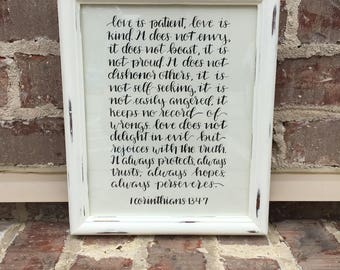 love is patient, love is
kind. It does not envy,
it does not boast, it is
not proud. It does not
dishonor others, it is
not self-seeking, it is
not easily angered, it
keeps no record of
wrongs. love does not
delight in evil but
rejoices with the truth.
It always protects, always
trusts, always hopes,
always perseveres.
1 Corinthians 13:4-7